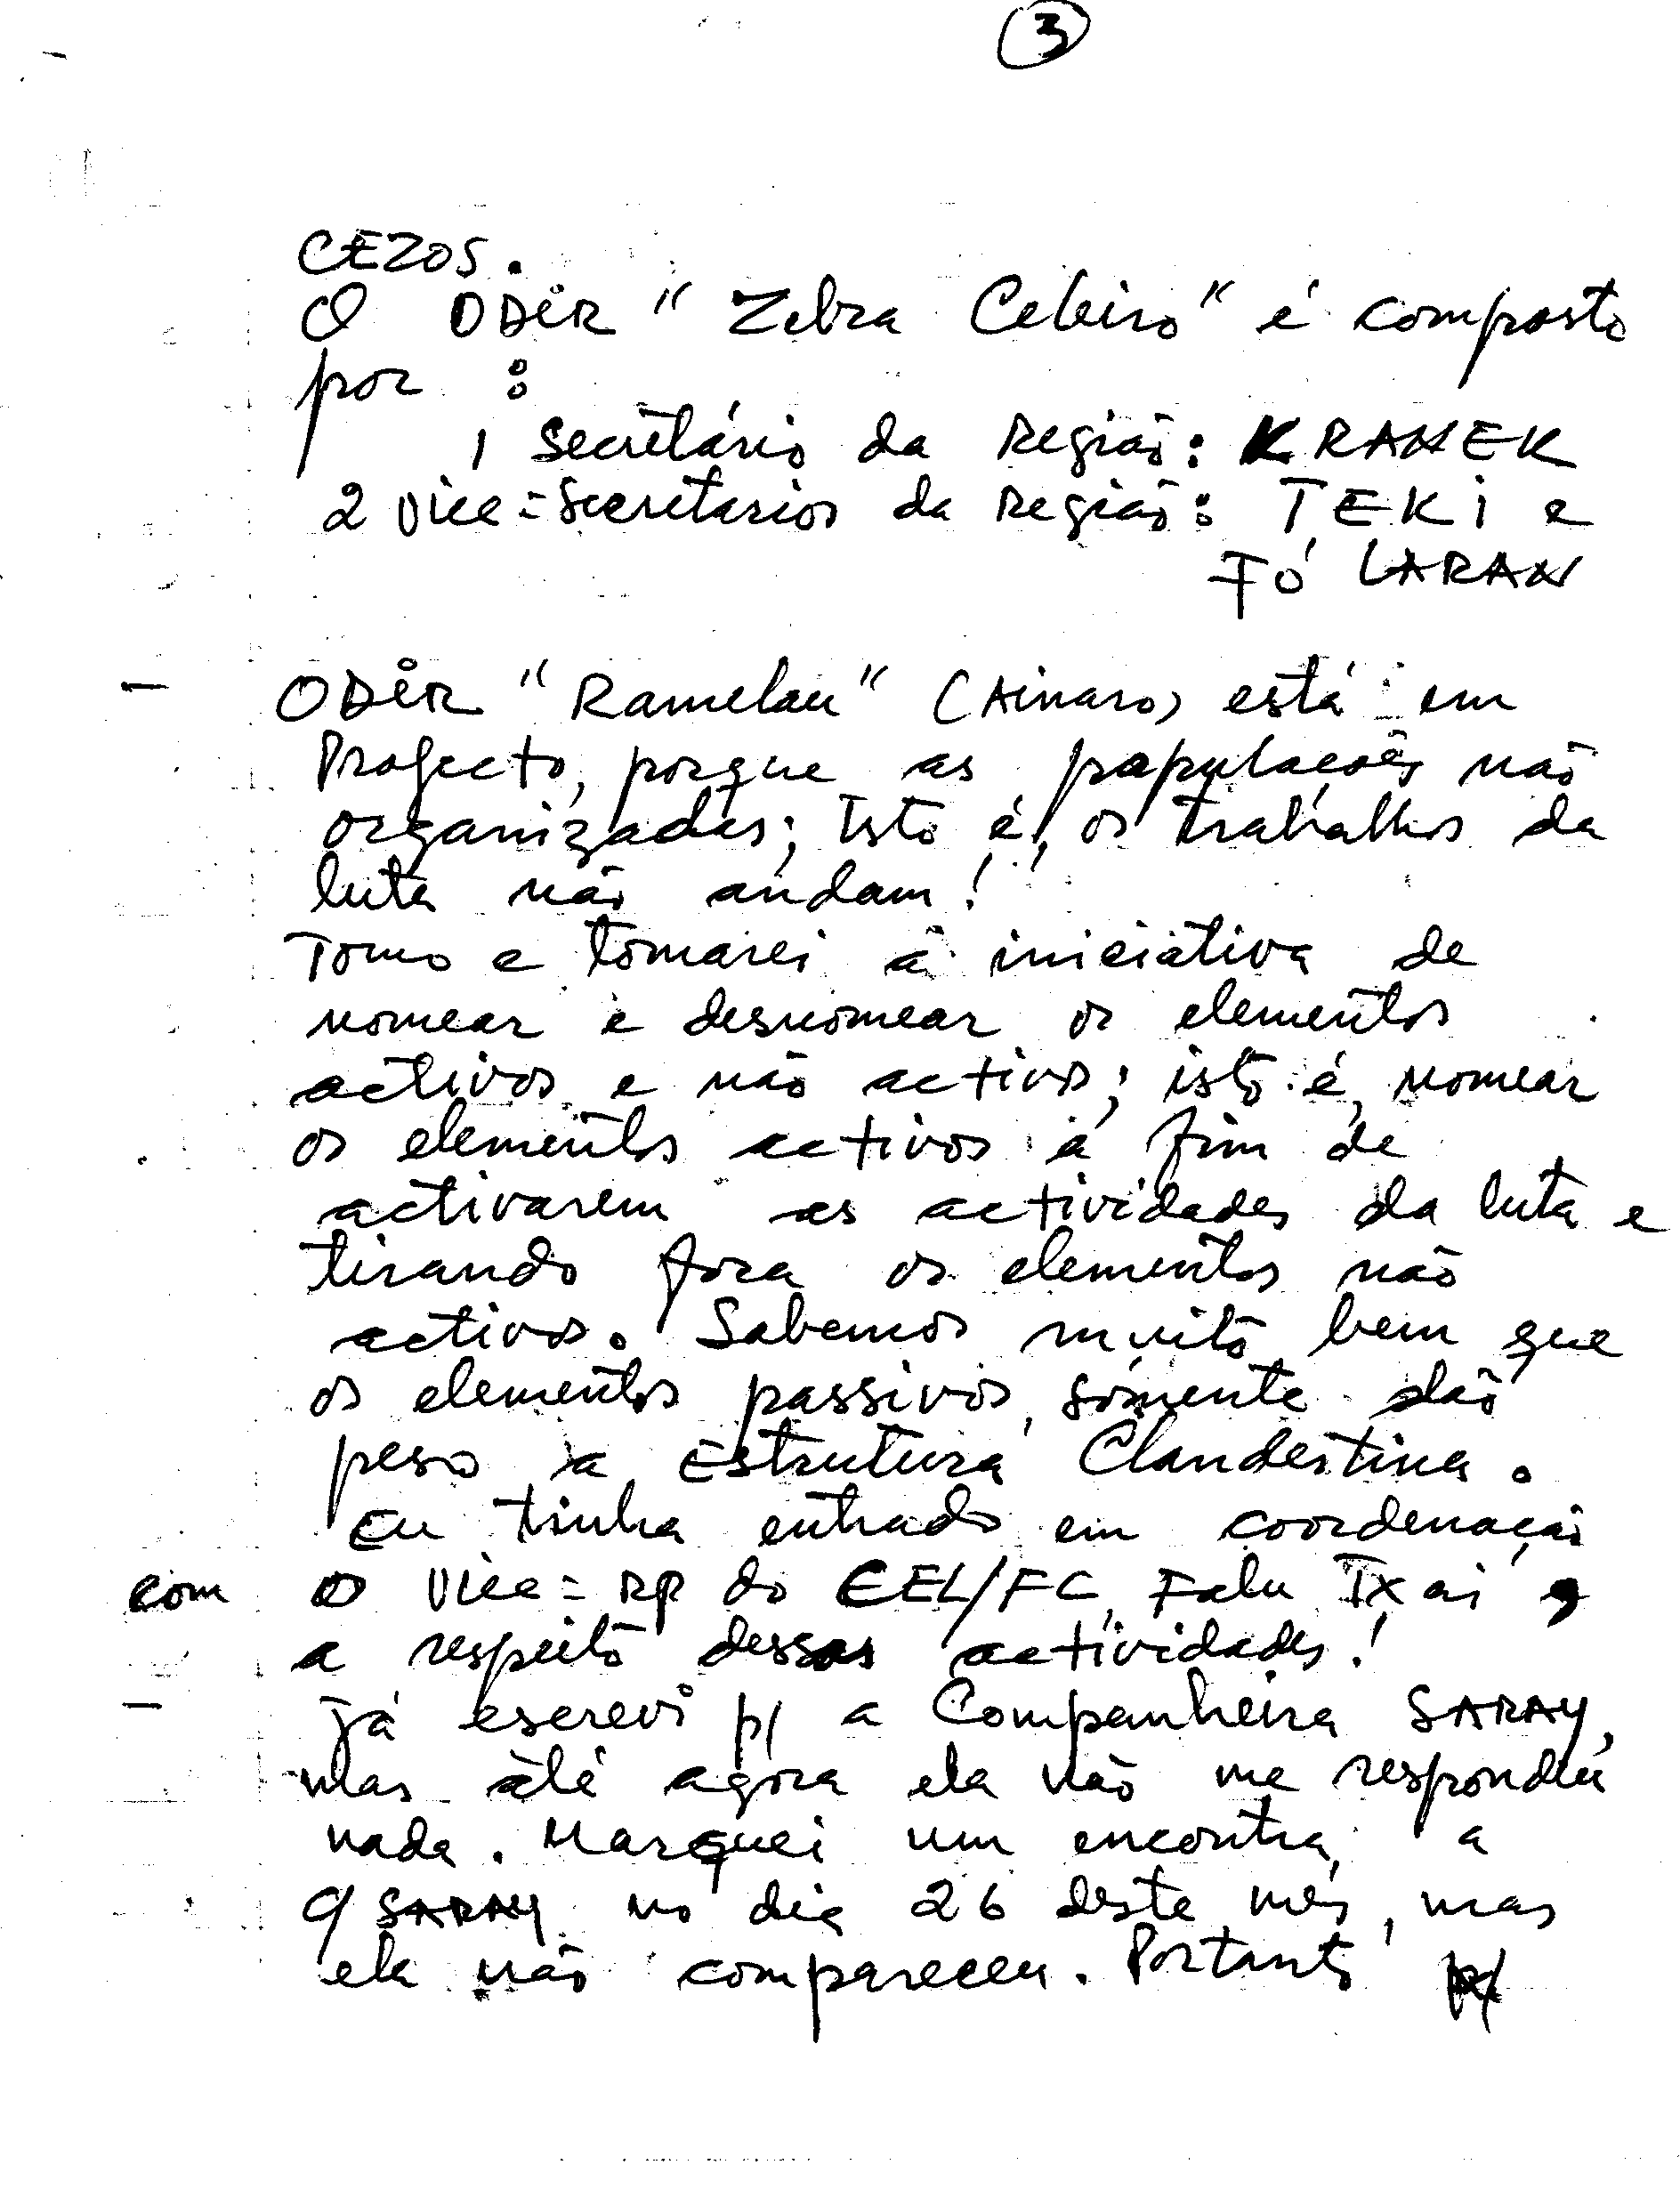 3
CEZOS.
O ODIR "Zebra Celeiro" é composto
por :
1 Secretário da Região: KRANEK
2 Vice=Secretarios da Região: TEKI e
FÓ LARAN
- ODIR "Ramelau" (Ainaro) está em
Projecto, porque as populações não
organizadas; Isto é, os trabalhos da
luta não andam!
Tomo e tomarei a iniciativa de
nomear e desnomear os elementos
activos e não activos; isto é, nomear
os elementos activos a fim de
activarem as actividades da luta e
tirando fora os elementos não
activos. Sabemos muito bem que
os elementos passivos, sómente dão
peso a Estrutura Clandestina.
Eu tinha entrado em coordenação
com o Vice=RP do CEL/FC, Falu Txai,
a respeito dessas actividades!
- Já escrevi p/ a Companheira SARAY,
mas até agora ela não me respondeu
nada. Marquei um encontra, a
c/ SARAY no dia 26 deste mês, mas
ela não compareceu. Portanto p/